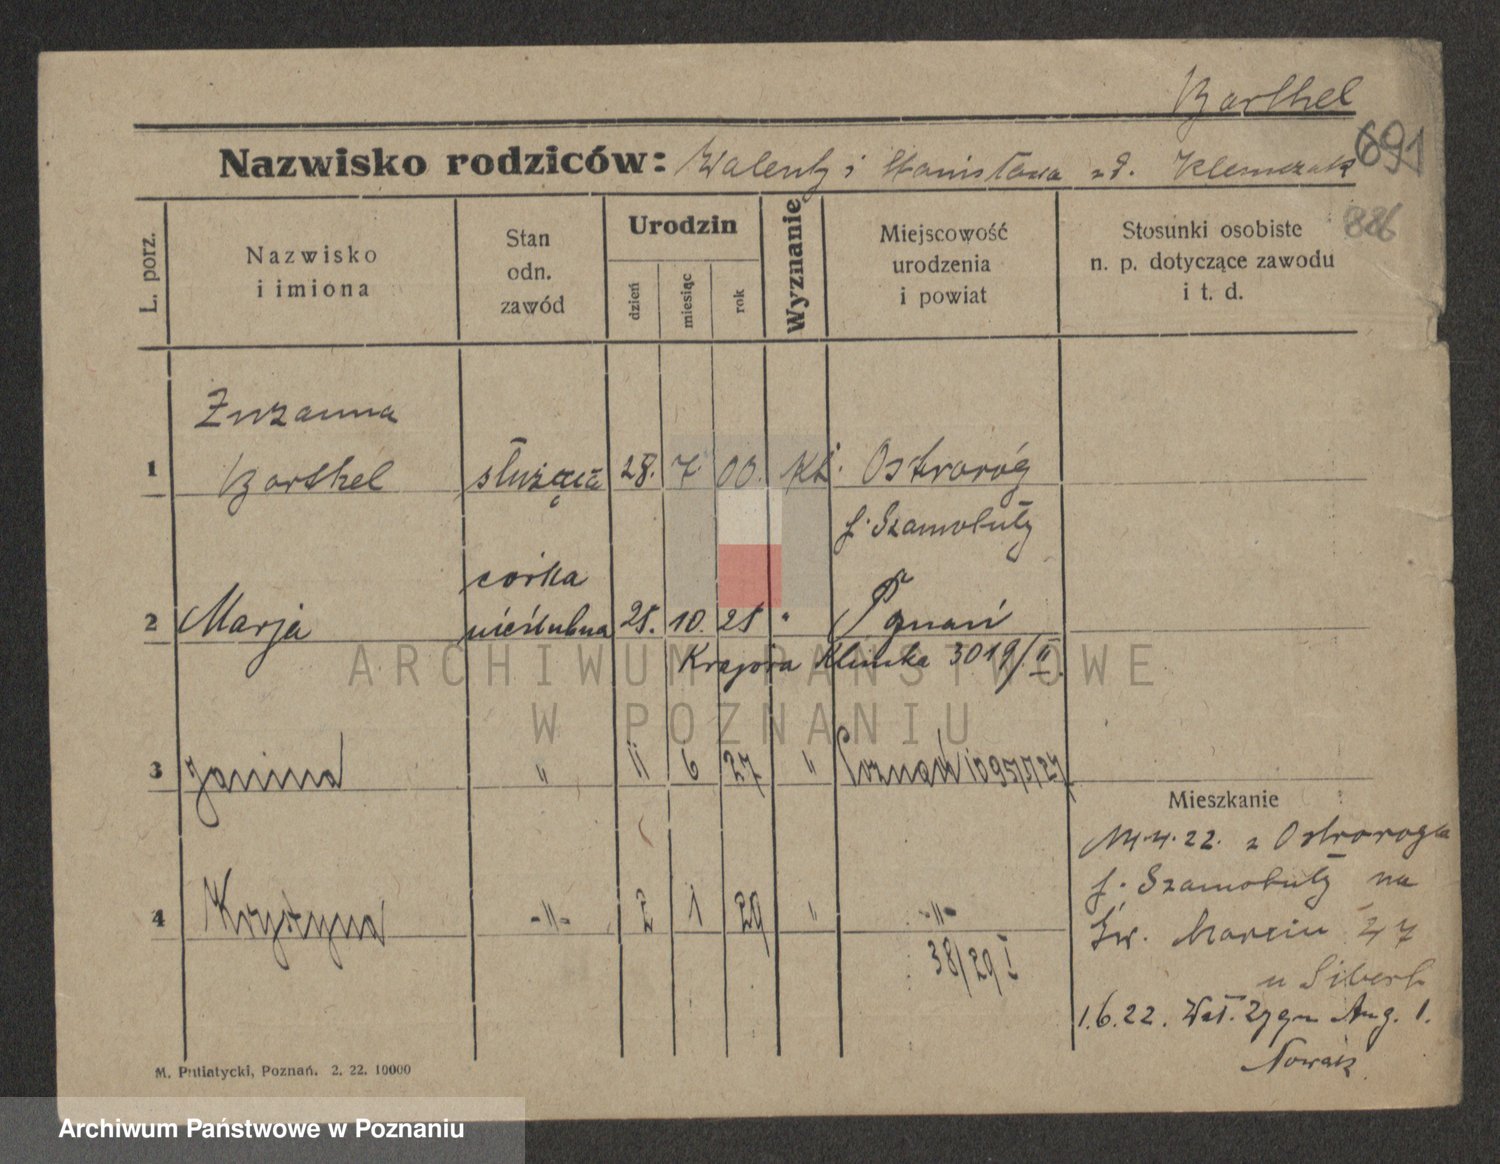 Barthel
691
Nazwisko rodziców: Walenty i Stanisława zd. Klemczak
886
L. porz.
Nazwisko
i imiona
Stan
odn.
zawód
Urodzin
dzień
miesiąc
rok
Wyznanie
Miejscowość
urodzenia
i powiat
Stosunki osobiste
n. p. dotyczące zawodu
i t. d.
Zuzanna
1 Barthel służąca 28. 7 00. kt. Ostroróg
p. Szamotuły
córka
2 Marja nieślubna 25. 10. 25 " Poznań
Krajowa Klinika 3019/II.
ARCHIWUM PAŃSTWOWE
W POZNANIU
3 Janina " 11 6 27 " Poznań 1095/27
4 Krystyna -"- 2 1 29 " -"-
38/29 I
Mieszkanie
22. z Ostroroga
p. Szamotuły na
Św. Marcin 37
u Sibert
1.6.22. Wał. Zygm. Aug. 1.
Nowak
M. Putiatycki, Poznań. 2. 22. 10000
Archiwum Państwowe w Poznaniu